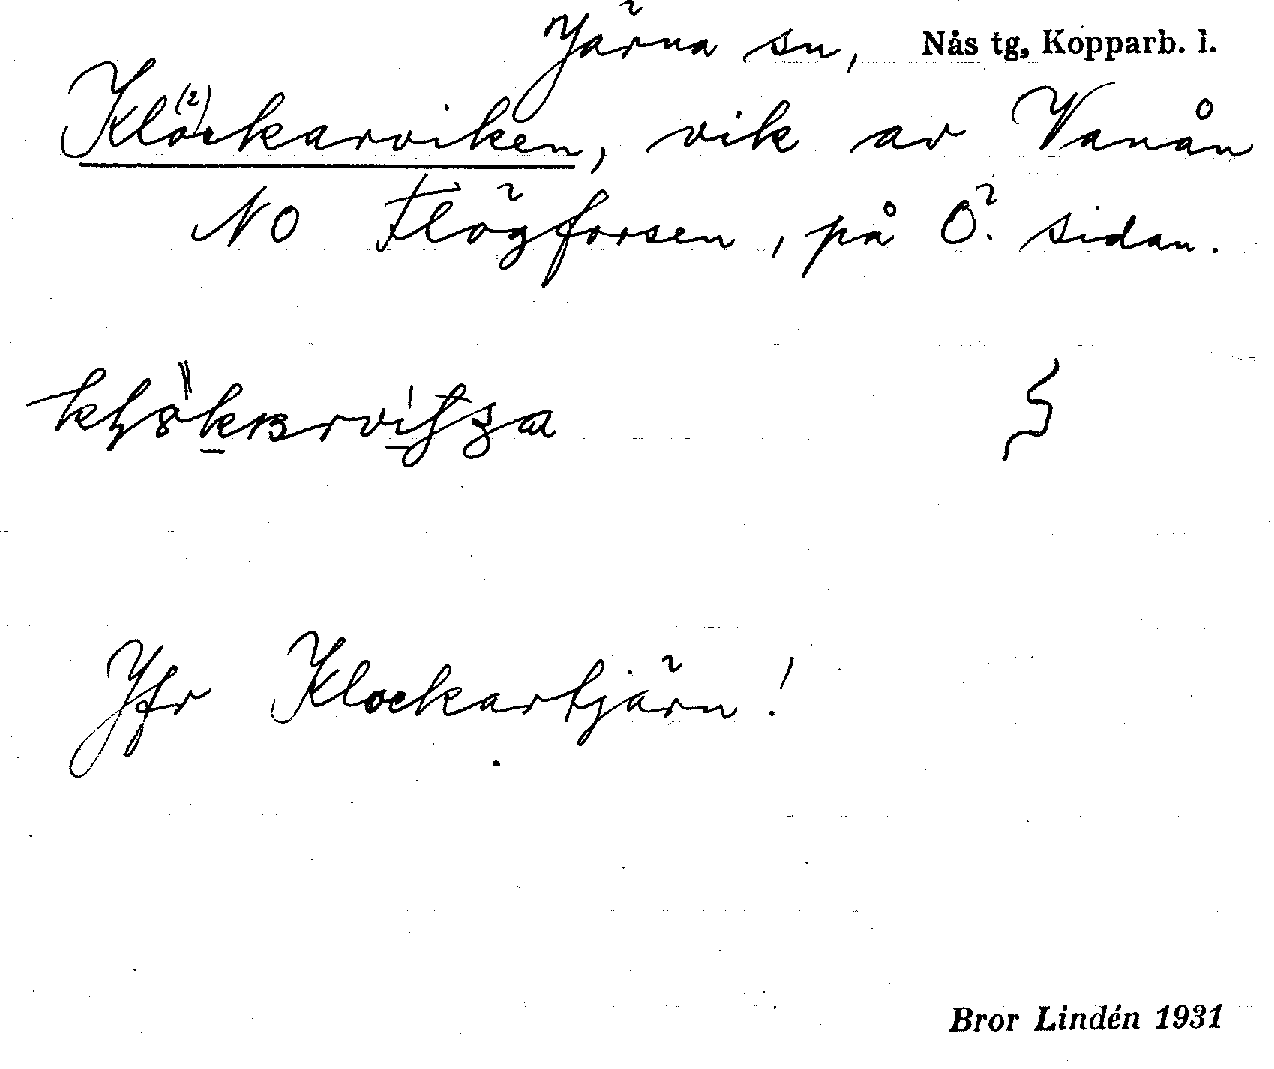 Järna sn, Nås tg, Kopparb. l.
Klöckarviken, vik av Vanån
NO Flögforsen, på Ö. sidan.
Jfr Klockartjärn!
Bror Lindén 1931